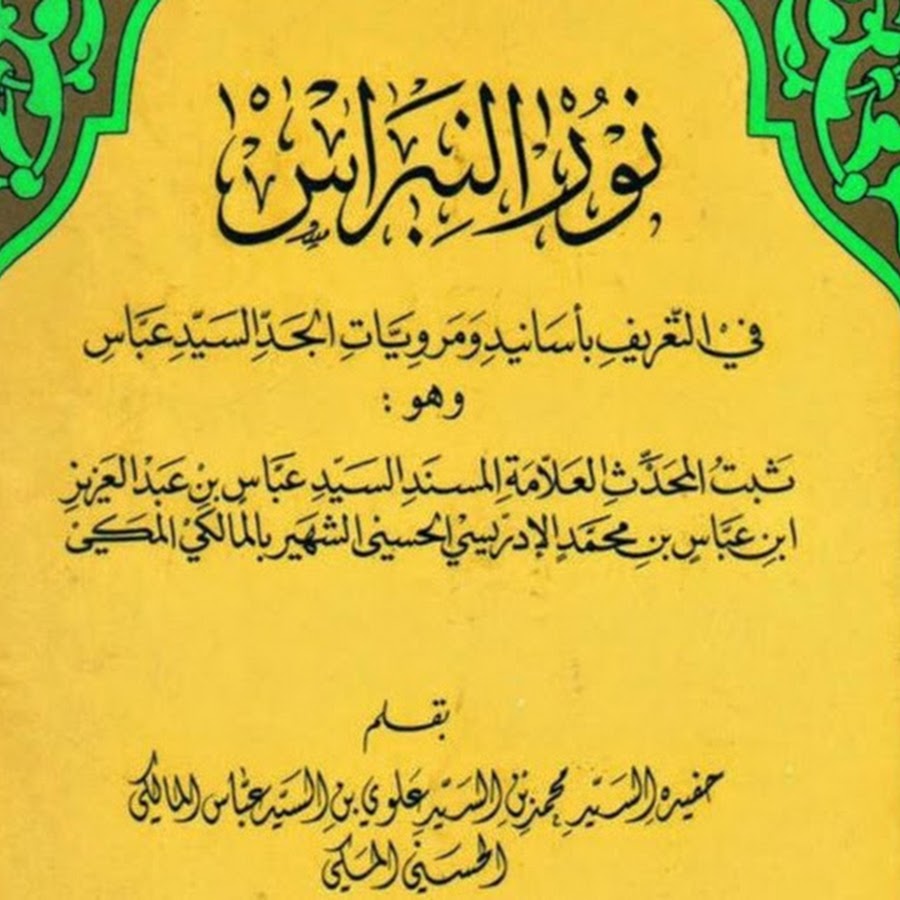 نُورُ النِّبْرَاسْ
في التعريف بأسانيد ومرويات الجد السيد عباس
وهو :
ثبت المحدث العلامة المسند السيد عباس بن عبد العزيز
ابن عباس بن محمد الإدريسي الحسيني الشهير بالمالكي المكي
بقلم
حفيده السيد محمد بن السيد علوي بن السيد عباس المالكي
الحسني المكي